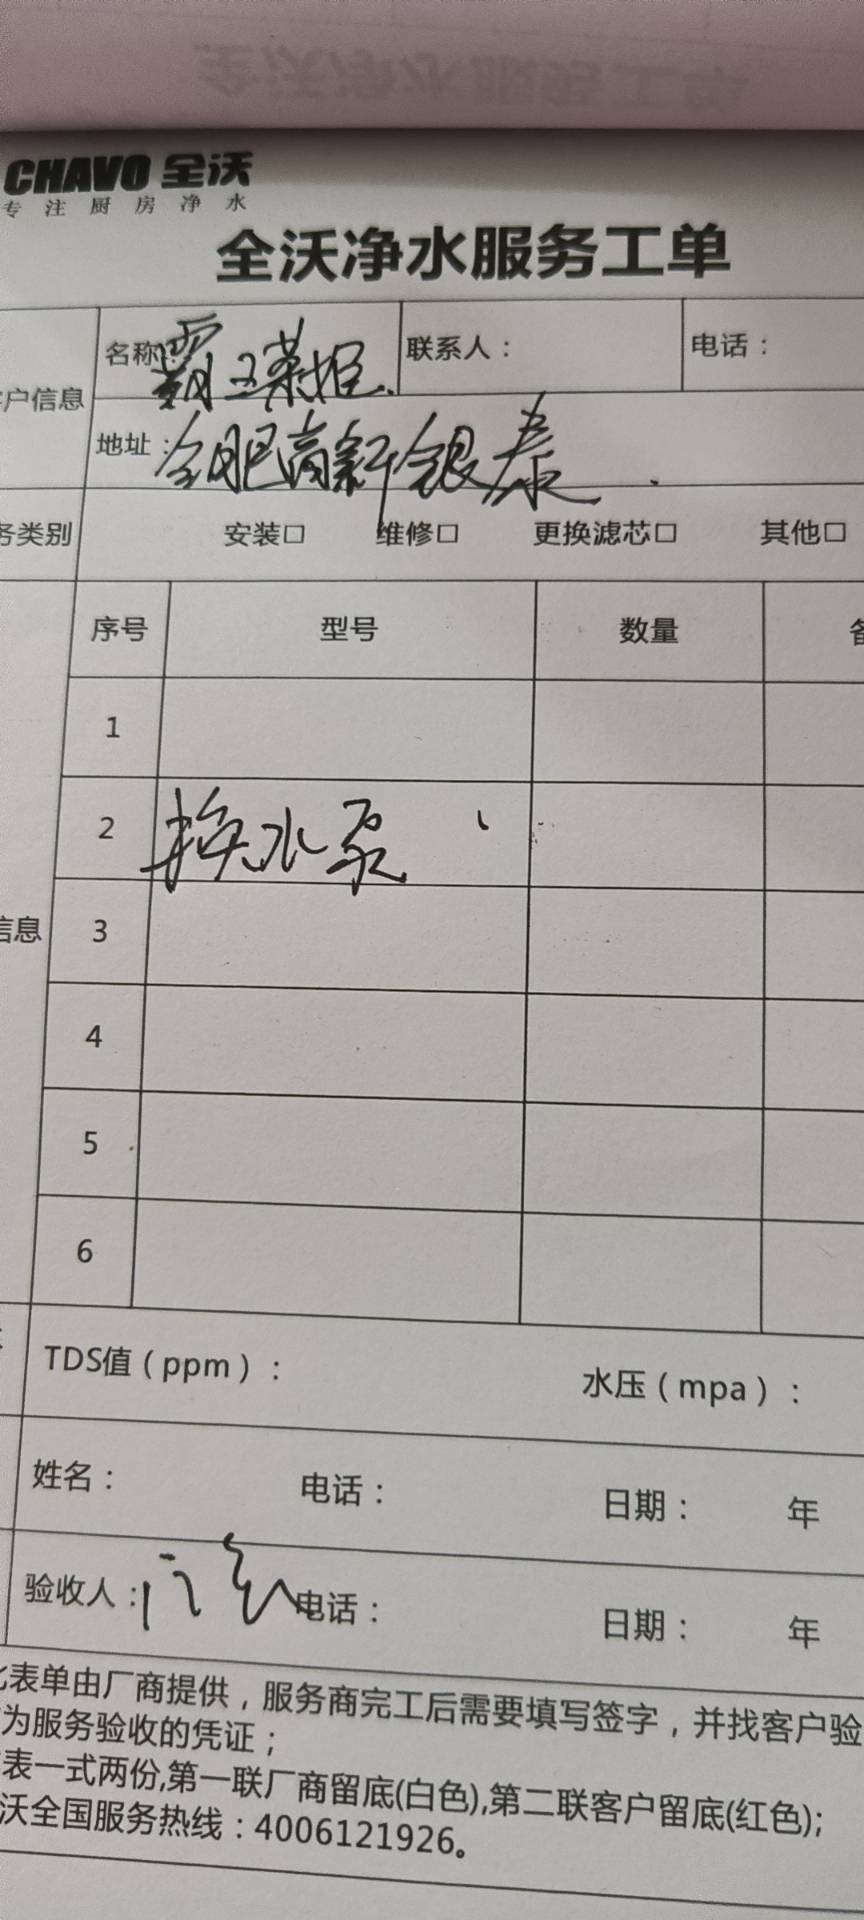 CHAVO 全沃
专注厨房净水
全沃净水服务工单
户信息
名称：霸王茶姬
联系人：
电话：
地址：合肥高新银泰
务类别
安装□ 维修□ 更换滤芯□ 其他□
序号 型号 数量
1
2 换水泵
信息
3
4
5
6
TDS值（ppm）： 水压（mpa）：
姓名： 电话： 日期： 年
验收人： 电话： 日期： 年
表单由厂商提供，服务商完工后需要填写签字，并找客户验
为服务验收的凭证；
表一式两份,第一联厂商留底(白色),第二联客户留底(红色);
沃全国服务热线：4006121926。